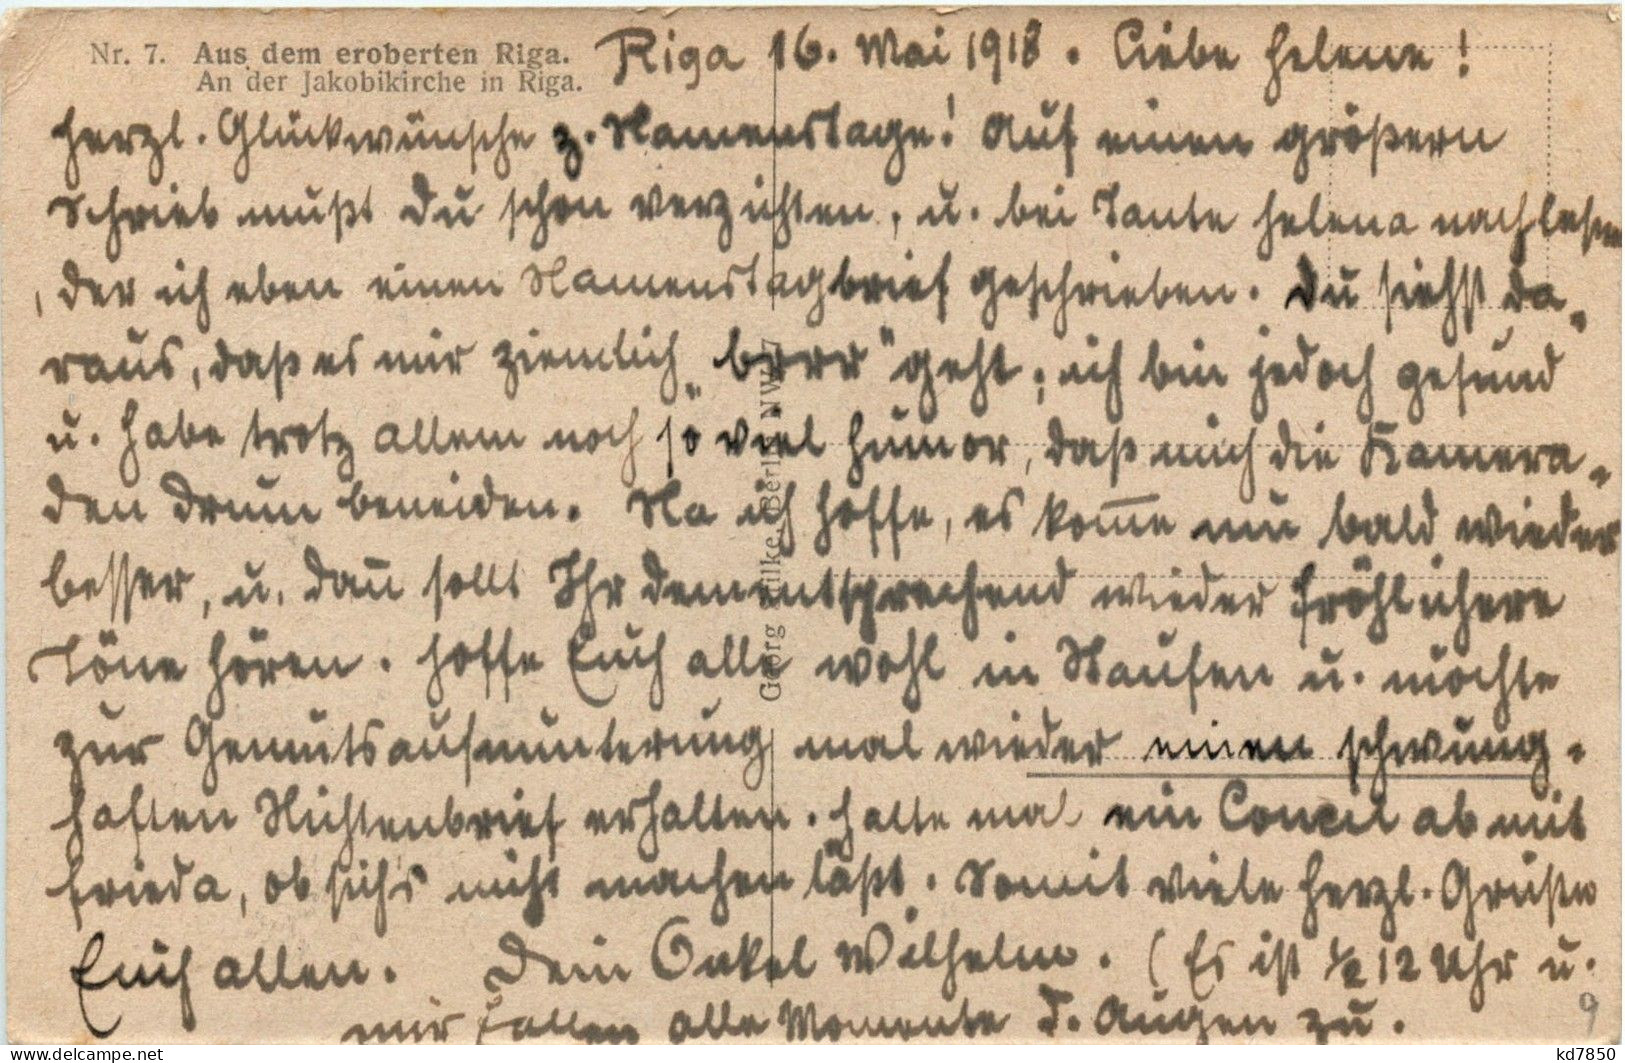 Nr. 7. Aus dem eroberten Riga.
An der Jakobikirche in Riga.
Riga 16. Mai 1918. Liebe Helene!
Herzl. Glückwünsche z. Namenstage! Auf einen größern
Schrieb mußt Du schon verzichten, u. bei Tante Helena nachlesen
, der ich eben einen Namenstagbrief geschrieben. Du siehst da-
raus, daß es mir ziemlich „brrr" geht; ich bin jedoch gesund
u. habe trotz allem noch so viel Humor, daß mich die Kamera-
den drum beneiden. Na ich hoffe, es kom̅e nun bald wieder
besser, u. dan̅ sollt Ihr dementsprechend wieder fröhlichere
Töne hören. Hoffe Euch alle wohl in Staufen u. möchte
zur Gemütsaufmunterung mal wieder einen schwung-
haften Nichtenbrief erhalten. Halte mal ein Concil ab mit
Frieda, ob sich's nicht machen läßt. Somit viele herzl. Grüße
Euch allen. Dein Onkel Wilhelm. (Es ist ½ 12 Uhr u.
mir fallen alle Momente d. Augen zu.
9
Georg Stilke, Berlin NW 7
kd7850